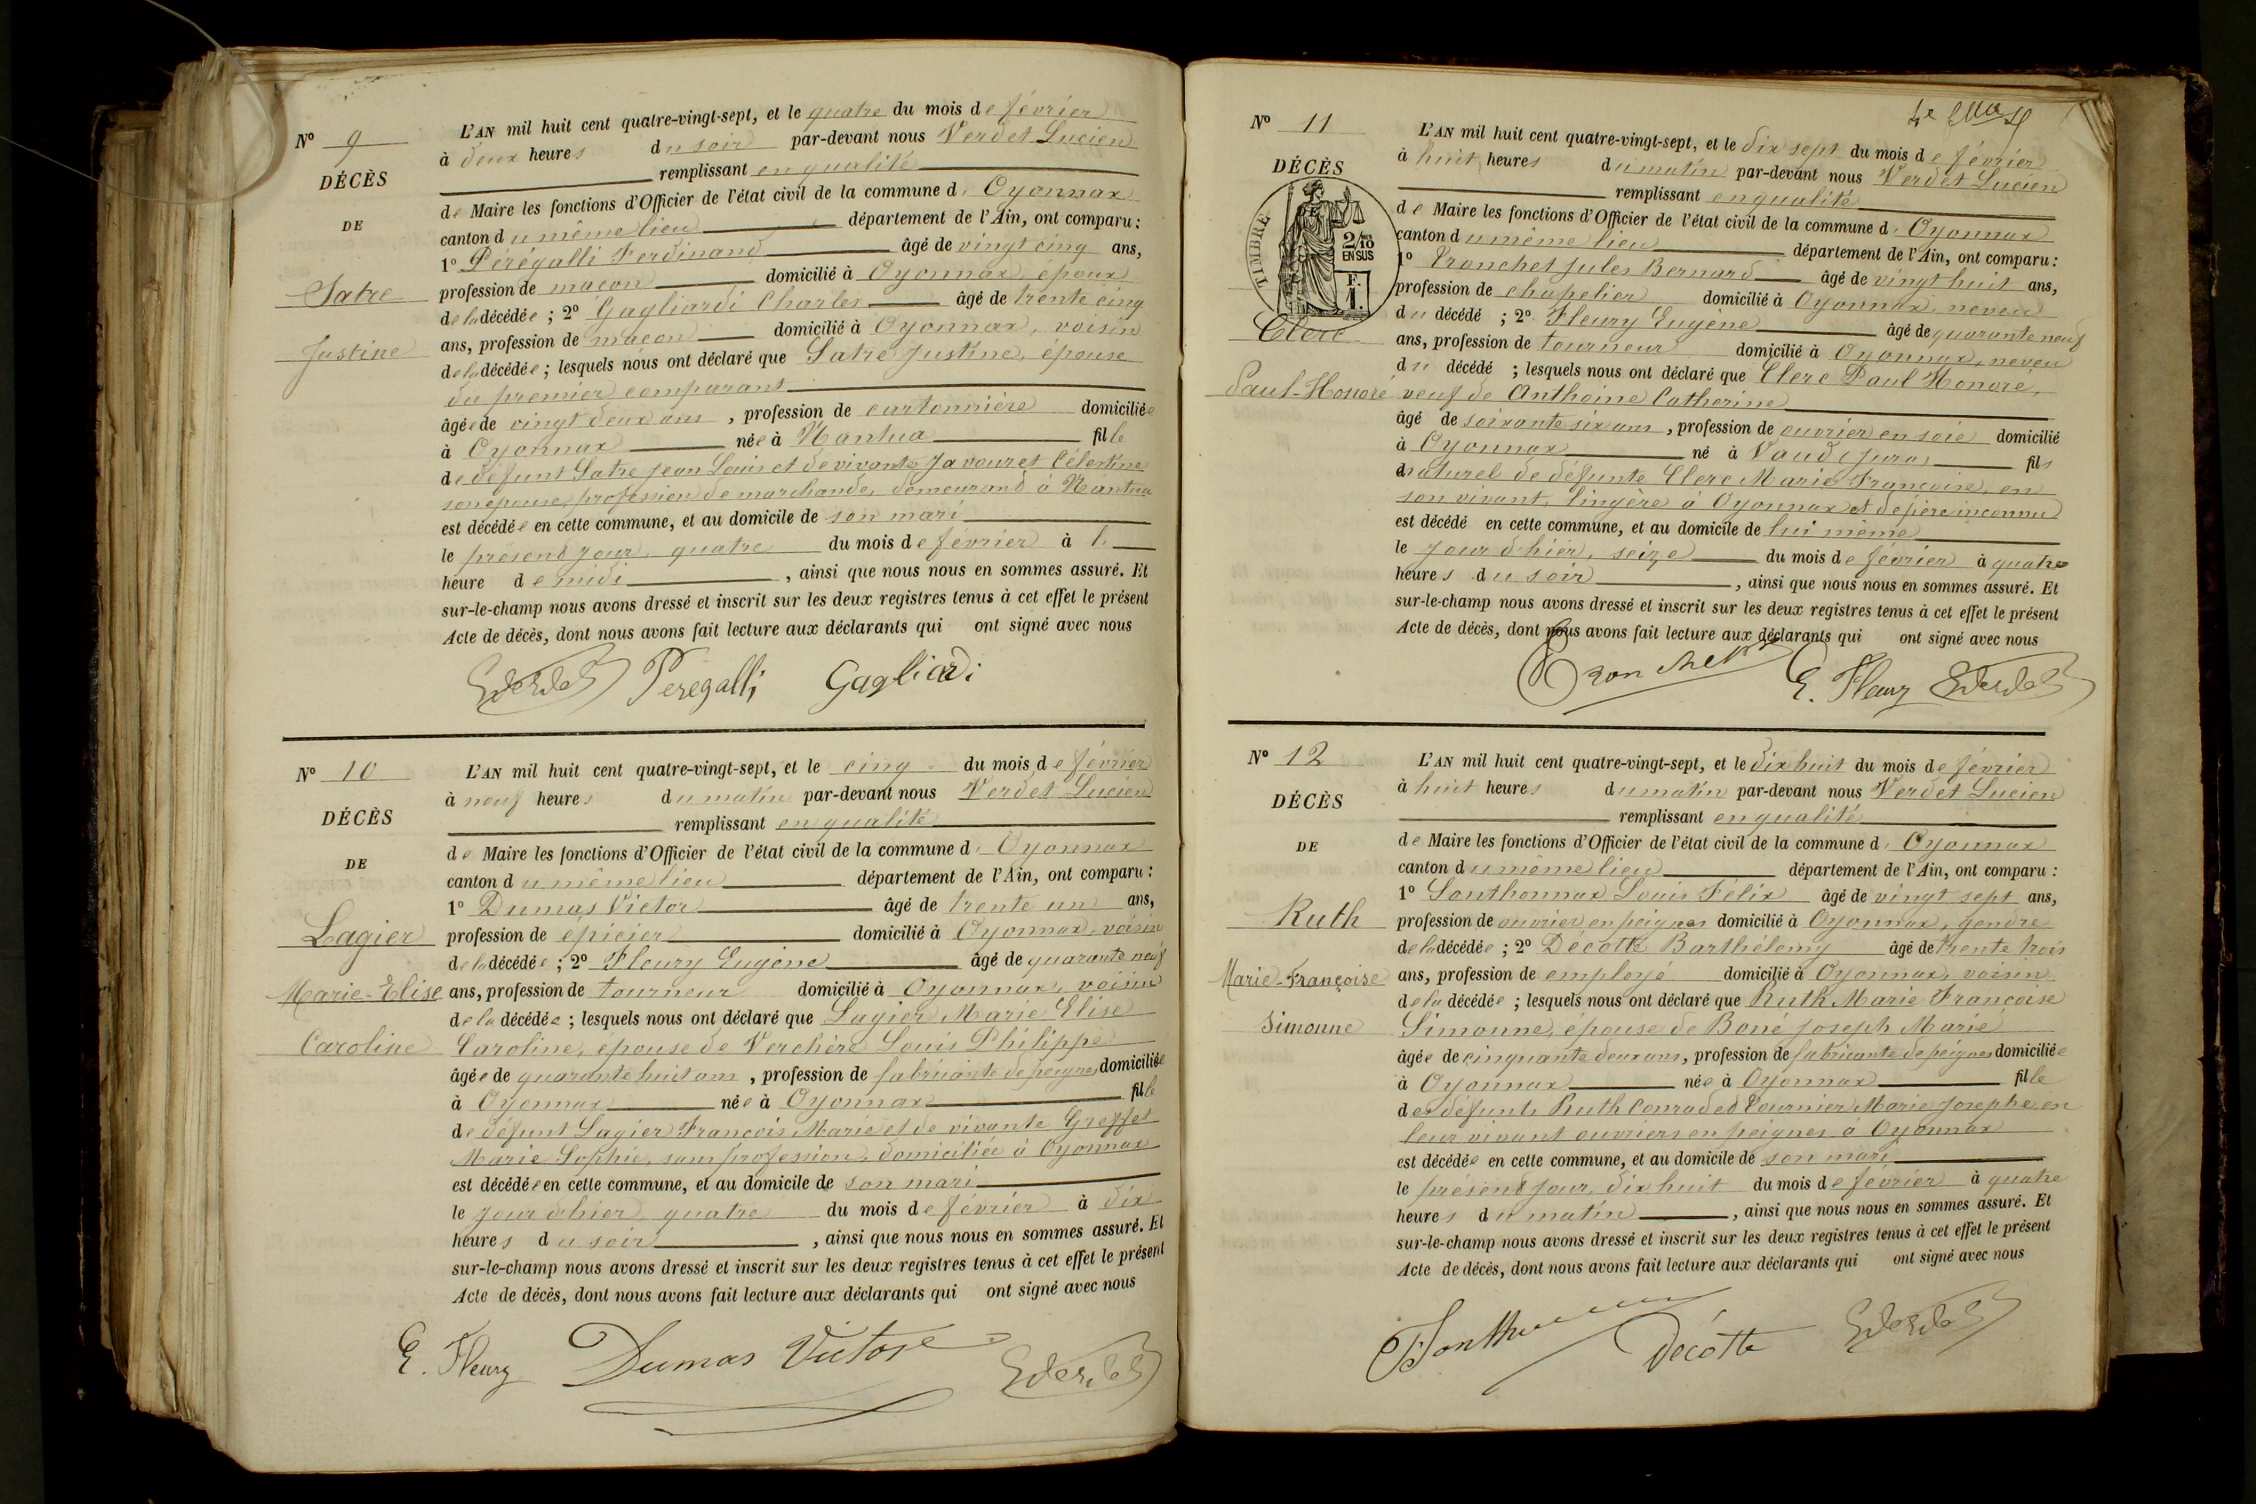 N° 9
DÉCÈS
DE
Satre
Justine
L'AN mil huit cent quatre-vingt-sept, et le quatre du mois de février
à deux heures du soir par-devant nous Verdet Lucien
remplissant en qualité
de Maire les fonctions d'Officier de l'état civil de la commune d' Oyonnax
canton du même lieu département de l'Ain, ont comparu :
1° Pérégalli Ferdinand âgé de vingt cinq ans,
profession de maçon domicilié à Oyonnax, époux
de la décédée ; 2° Gagliardi Charles âgé de trente cinq
ans, profession de maçon domicilié à Oyonnax, voisin
de la décédée ; lesquels nous ont déclaré que Satre Justine, épouse
du premier comparant
âgée de vingt deux ans , profession de cartonnière domiciliée
à Oyonnax née à Nantua fille
de défunt Satre Jean Louis et de vivante Javouret Célestine
son épouse, profession de marchande, demeurant à Nantua
est décédée en cette commune, et au domicile de son mari
le présent jour, quatre du mois de février à l'
heure de midi , ainsi que nous nous en sommes assuré. Et
sur-le-champ nous avons dressé et inscrit sur les deux registres tenus à cet effet le présent
Acte de décès, dont nous avons fait lecture aux déclarants qui ont signé avec nous
Peregalli Gagliardi
N° 10
DÉCÈS
DE
Lagier
Marie-Elise
Caroline
L'AN mil huit cent quatre-vingt-sept, et le cinq du mois de février
à neuf heures du matin par-devant nous Verdet Lucien
remplissant en qualité
de Maire les fonctions d'Officier de l'état civil de la commune d' Oyonnax
canton du même lieu département de l'Ain, ont comparu :
1° Dumas Victor âgé de trente un ans,
profession de épicier domicilié à Oyonnax, voisin
de la décédée ; 2° Fleury Eugène âgé de quarante neuf
ans, profession de tourneur domicilié à Oyonnax, voisin
de la décédée ; lesquels nous ont déclaré que Lagier Marie Elise
Caroline, épouse de Verchère Louis Philippe
âgée de quarante huit ans , profession de fabricante de peignes domiciliée
à Oyonnax née à Oyonnax fille
de défunt Lagier François Marie et de vivante Greffet
Marie Sophie, sans profession, domiciliée à Oyonnax
est décédée en cette commune, et au domicile de son mari
le jour d'hier quatre du mois de février à dix
heures du soir , ainsi que nous nous en sommes assuré. Et
sur-le-champ nous avons dressé et inscrit sur les deux registres tenus à cet effet le présent
Acte de décès, dont nous avons fait lecture aux déclarants qui ont signé avec nous
E. Fleury Dumas Victor
N° 11
DÉCÈS
TIMBRE
2/10
EN SUS
F.
1.
Clerc
Paul-Honoré
L'AN mil huit cent quatre-vingt-sept, et le dix sept du mois de février
à huit heures du matin par-devant nous Verdet Lucien
remplissant en qualité
de Maire les fonctions d'Officier de l'état civil de la commune d' Oyonnax
canton du même lieu département de l'Ain, ont comparu :
1° Tronchet Jules Bernard âgé de vingt huit ans,
profession de chapelier domicilié à Oyonnax neveu
du décédé ; 2° Fleury Eugène âgé de quarante neuf
ans, profession de tourneur domicilié à Oyonnax, neveu
du décédé ; lesquels nous ont déclaré que Clerc Paul Honoré,
veuf de Anthoine Catherine
âgé de soixante six ans , profession de ouvrier en soie domicilié
à Oyonnax né à Vaud, Jura, fils
naturel de défunte Clerc Marie Françoise, en
son vivant, lingère à Oyonnax et de père inconnu
est décédé en cette commune, et au domicile de lui même
le jour d'hier, seize du mois de février à quatre
heures du soir , ainsi que nous nous en sommes assuré. Et
sur-le-champ nous avons dressé et inscrit sur les deux registres tenus à cet effet le présent
Acte de décès, dont nous avons fait lecture aux déclarants qui ont signé avec nous
Tronchet E. Fleury
N° 12
DÉCÈS
DE
Ruth
Marie-Françoise
Simonne
L'AN mil huit cent quatre-vingt-sept, et le dix huit du mois de février
à huit heures du matin par-devant nous Verdet Lucien
remplissant en qualité
de Maire les fonctions d'Officier de l'état civil de la commune d' Oyonnax
canton du même lieu département de l'Ain, ont comparu :
1° Sonthonnax Louis Félix âgé de vingt sept ans,
profession de ouvrier en peignes domicilié à Oyonnax, gendre
de la décédée ; 2° Décotte Barthélemy âgé de trente trois
ans, profession de employé domicilié à Oyonnax, voisin
de la décédée ; lesquels nous ont déclaré que Ruth Marie Françoise
Simonne, épouse de Boné Joseph Marie
âgée de cinquante deux ans, profession de fabricante de peignes domiciliée
à Oyonnax née à Oyonnax fille
des défunts Ruth Conrad et Tournier Marie Josephe, en
leur vivant ouvriers en peignes à Oyonnax
est décédée en cette commune, et au domicile de son mari
le présent jour, dix huit du mois de février à quatre
heures du matin , ainsi que nous nous en sommes assuré. Et
sur-le-champ nous avons dressé et inscrit sur les deux registres tenus à cet effet le présent
Acte de décès, dont nous avons fait lecture aux déclarants qui ont signé avec nous
Décotte